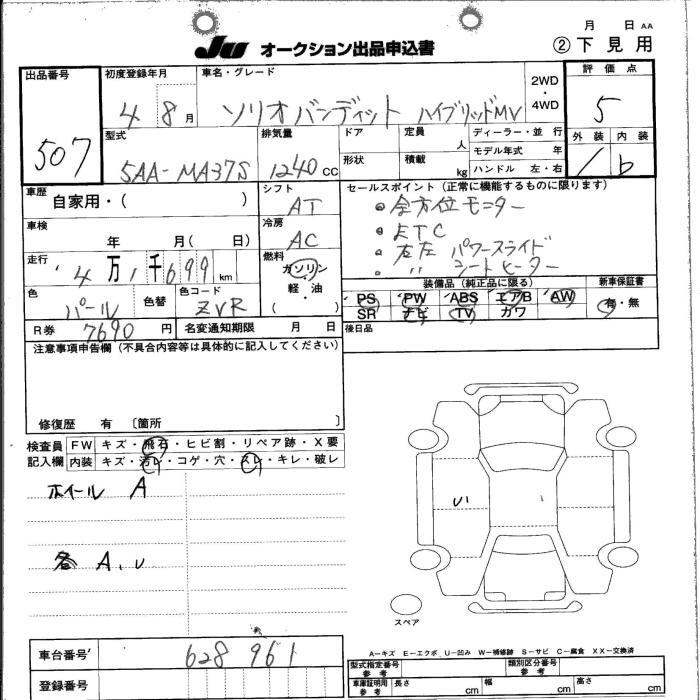 月 日 AA
JU オークション出品申込書 ② 下見用
出品番号 507
初度登録年月 4 8月
車名・グレード ソリオバンディット ハイブリッドMV
2WD・4WD
評価点 5
外装 内装 b
型式 5AA-MA37S
排気量 1240 cc
ドア 形状
定員 人
積載 kg
ディーラー・並行
モデル年式 年
ハンドル 左・右
車歴 自家用・( )
シフト AT
セールスポイント(正常に機能するものに限ります)
全方位モニター
ETC
パワースライド
〃 シートヒーター
車検 年 月( 日)
冷房 AC
走行 4万1千699km
燃料 ガソリン・軽・油 ( )
色 パール 色替
色コード ZVR
装備品(純正品に限る)
PS PW ABS エアB AW
SR ナビ TV カワ
新車保証書 有・無
R券 7690円
名変通知期限 月 日
後日品
注意事項申告欄(不具合内容等は具体的に記入してください)
修復歴 有〔箇所 〕
検査員記入欄
FW キズ・飛石・ヒビ割・リペア跡・X要
内装 キズ・汚レ・コゲ・穴・スレ・キレ・破レ
ホイール A
各 A、U
U1
スペア
車台番号 628961
登録番号
A-キズ E-エクボ U-凹み W-補修跡 S-サビ C-腐食 XX-交換済
型式指定番号 参考
類別区分番号 参考
車庫証明用 参考 長さ cm 幅 cm 高さ cm